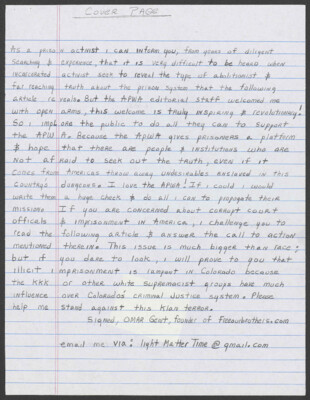 COVER PAGE
As a prison activist I can inform you, from years of diligent
searching & experience, that it is very difficult to be heard when
incarcerated activist seek to reveal the type of abolitionist &
far reaching truth about the prison system that the following
article reveals. But the APWA editorial staff welcomed me
with open arms, this welcome is truly inspiring & revolutionary!
So I implore the public to do all they can to support
the APWA. Because the APWA gives prisoners a platform
& hope that there are people & institutions who are
not afraid to seek out the truth, even if it
comes from Americas throw away undesirables enslaved in this
country's dungeons. I love the APWA! If I could I would
write them a huge check & do all I can to propagate their
mission. If you are concerned about corrupt court
officials & imprisonment in America, I challenge you to
read the following article & answer the call to action
mentioned therein. This issue is much bigger than race;
but if you dare to look, I will prove to you that
illicit imprisonment is rampant in Colorado because
the KKK or other white supremacist groups have much
influence over Colorados' criminal justice system. Please
help me stand against this Klan terror.
Signed, OMAR Gent, founder of Freeourbrothers.com
email me via: light Matter Time @ gmail.com